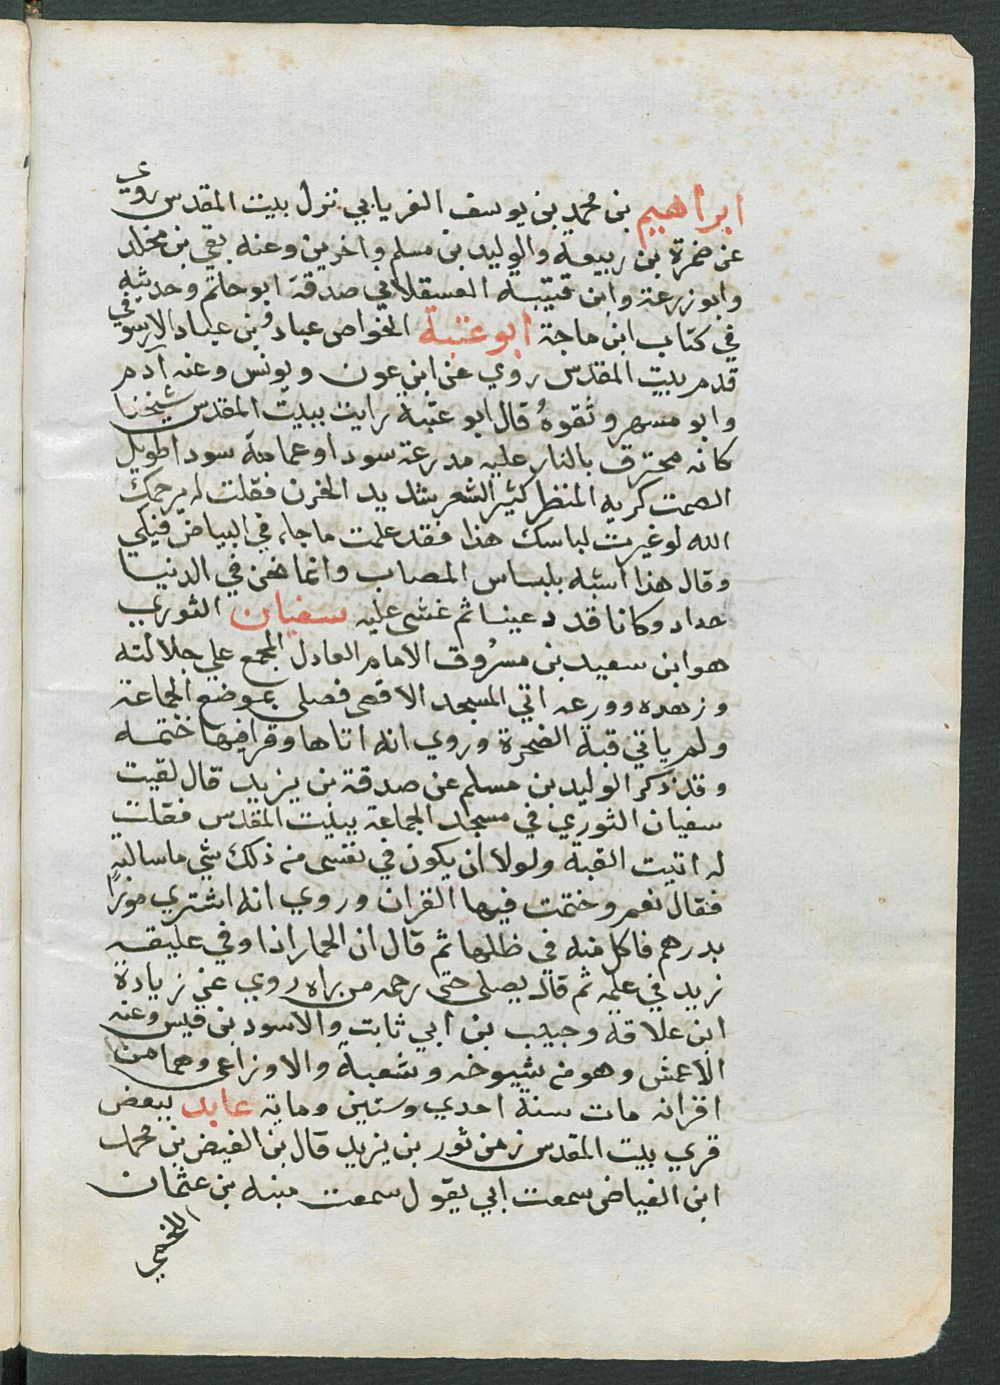 ابراهيم بن محمد بن يوسف الفريابي نزل بيت المقدس روي
عن ضمرة بن ربيعة والوليد بن مسلم واخرين وعنه بقي بن مخلد
وابوزرعة وابن قتيبة العسقلاني صدقة ابوحاتم وحديثه
في كتاب ابن ماجة ابوعتبة الخواص عباد بن عباد الارسوفي
قدم بيت المقدس روي عن ابن عون ويونس وعنه آدم
وابو مسهر وثقوهُ قال ابو عتبة رايت ببيت المقدس شيخا
كانه محترق بالنار عليه مدرعة سودا وعمامة سودا طويل
الصمت كريه المنظر كثير الشعر شديد الحزن فقلت له يرحمك
الله لو غيرت لباسك هذا فقد علمت ماجاء في البياض فبكي
وقال هذا اشبه بلباس المصاب وانما نحن في الدنيا
حداد وكانا قد دعينا ثم غشي عليه سفيان الثوري
هو ابن سعيد بن مسروق الامام العادل المجمع علي جلالته
وزهده وورعه اتي المسجد الاقصي فصلي بموضع الجماعة
ولم ياتي قبة الصخرة وروي انه اتاها وقرا فيها ختمة
وقد ذكر الوليد بن مسلم عن صدقة بن يزيد قال لقيت
سفيان الثوري في مسجد الجماعة ببيت المقدس فقلت
له اتيت القبة ولولا ان يكون في نفسي من ذلك شي ماسالته
فقال نعم وختمت فيها القران وروي انه اشتري موزا
بدرهم فاكل منه في ظلها ثم قال ان الحمار اذا وفي عليقه
زيد في عليه ثم قال يصلي حتي رحمه من يراه روي عن زيادة
ابن علاقة وحبيب بن ابي ثابت والاسود بن قيس وعنه
الاعمش وهو من شيوخه وشعبة والاوزاعي وهما من
اقرانه مات سنة احدي وستين وماية عابد ببعض
قري بيت المقدس زمن ثور بن يزيد قال بن الفيض بن محمد
ابن الفياض سمعت ابي يقول سمعت منبه بن عثمان
اللخمي